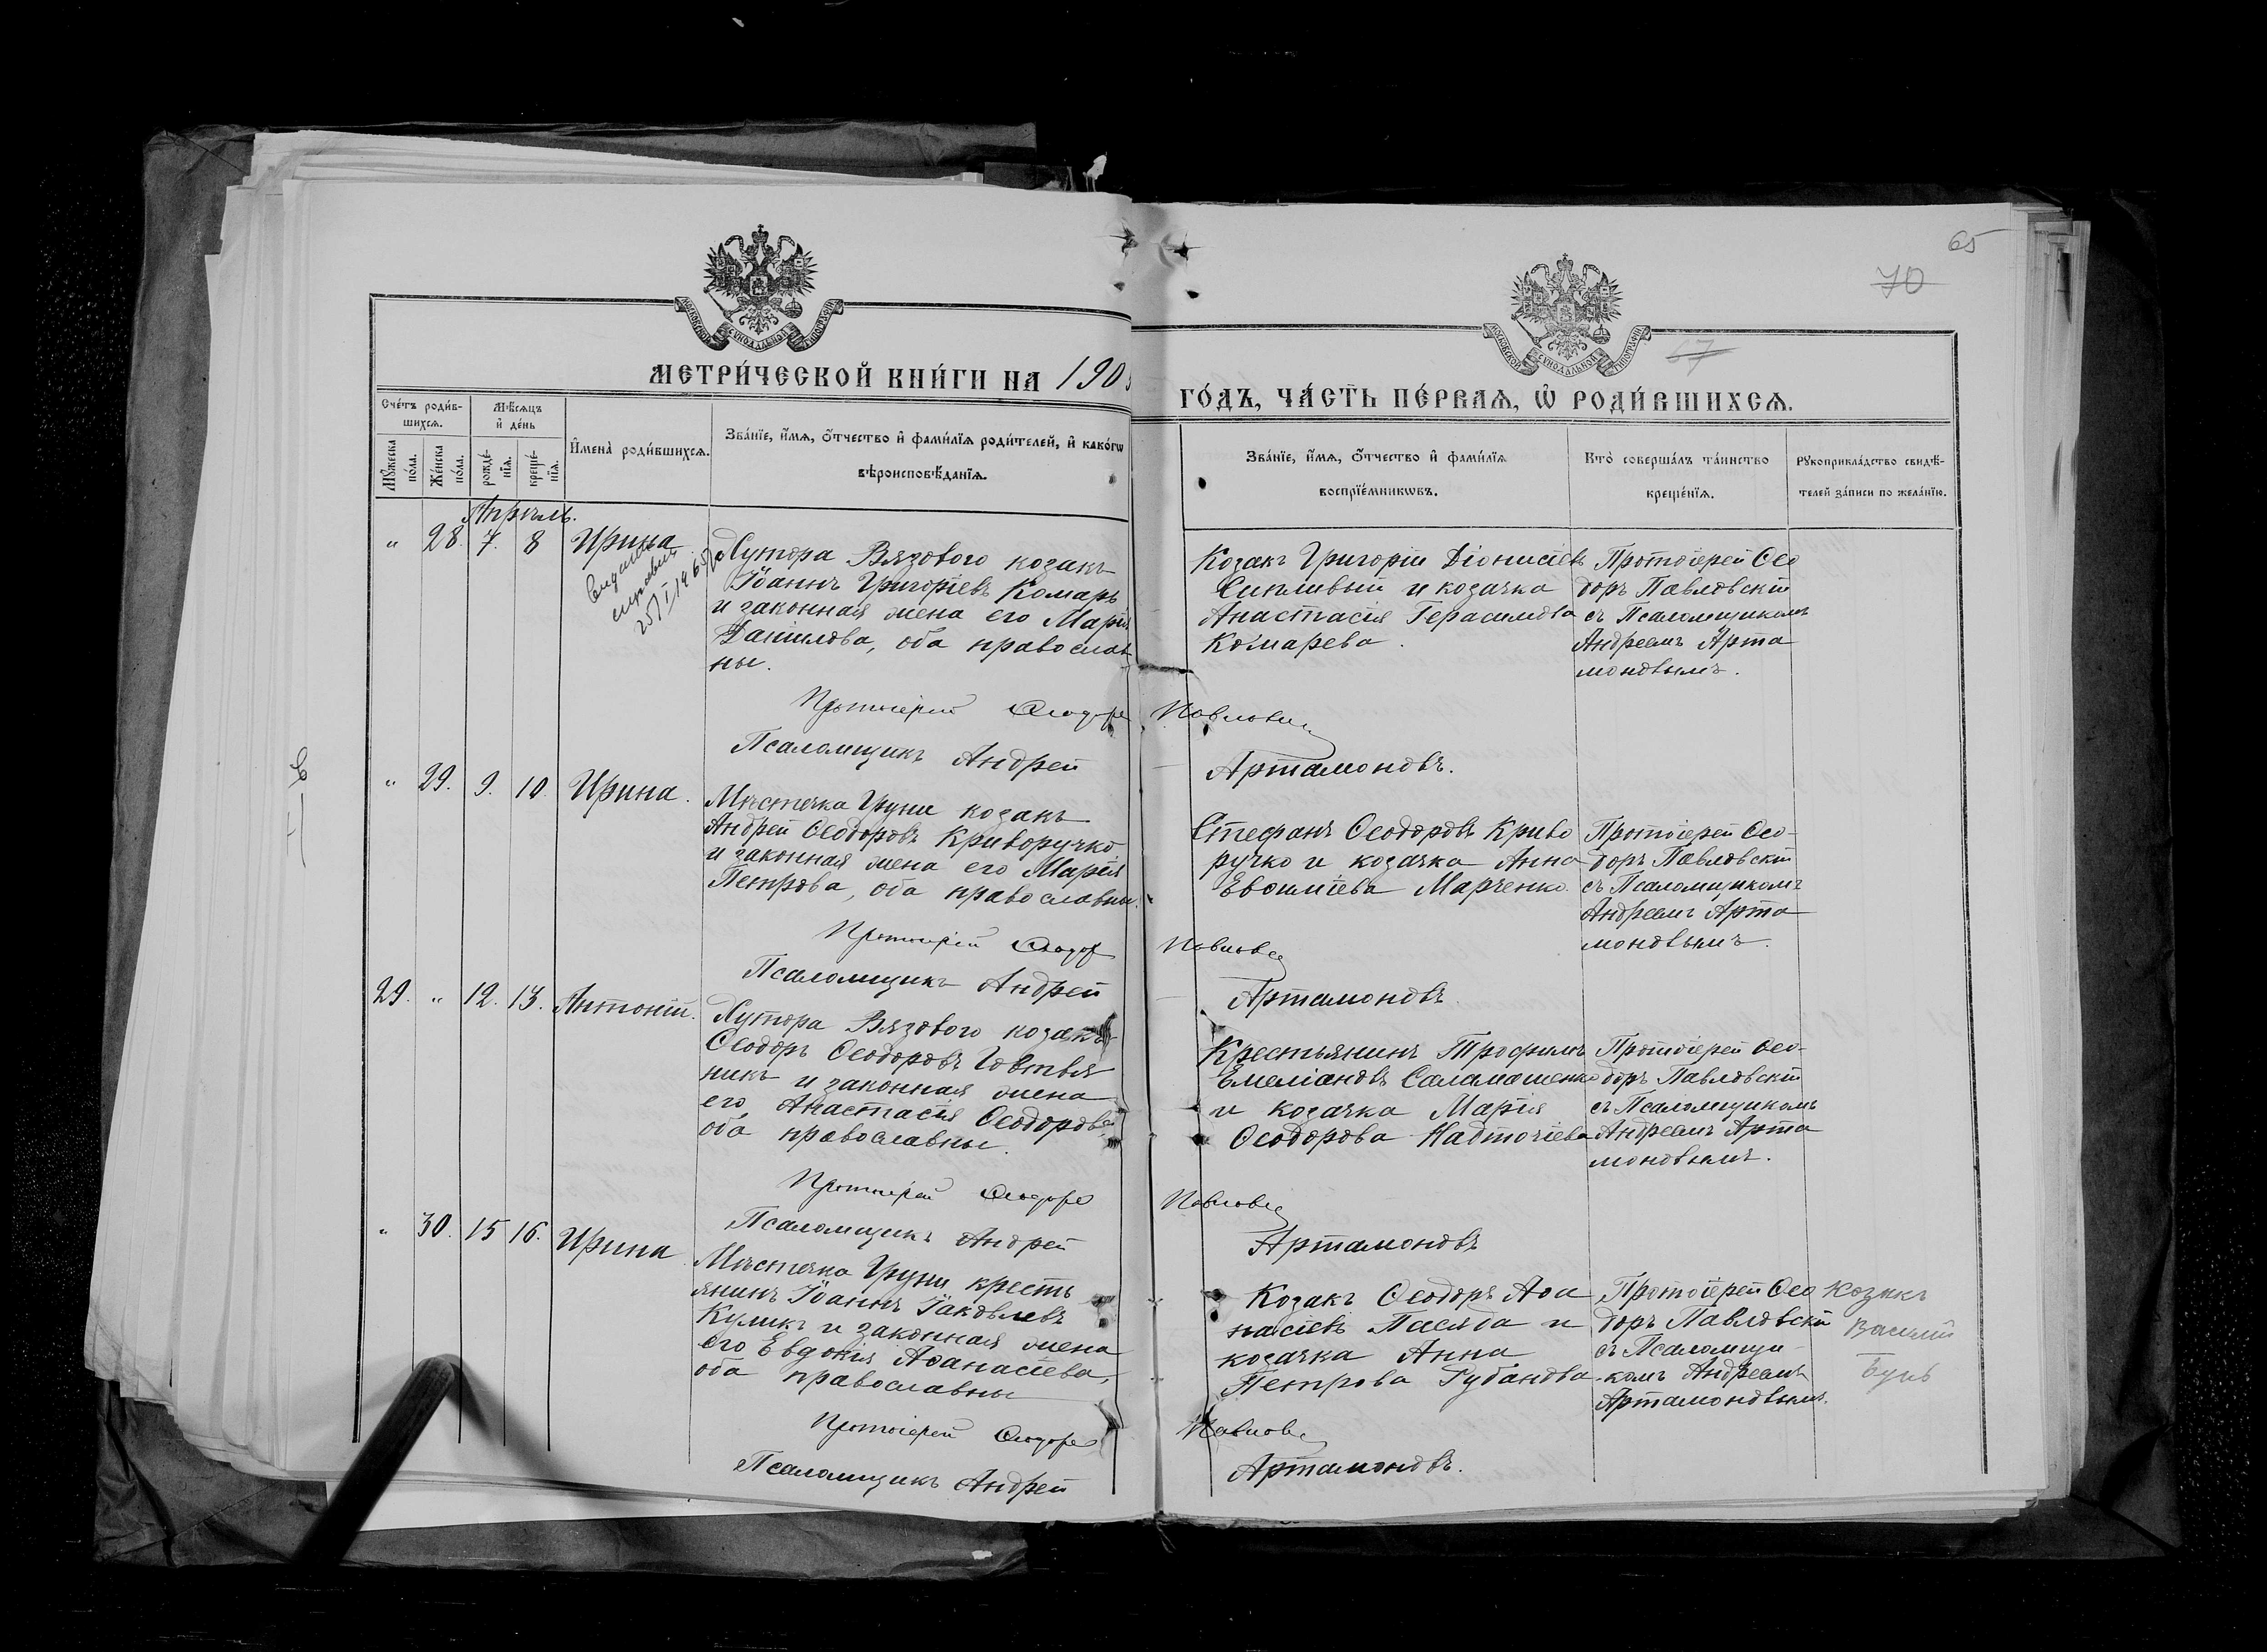 65
70
67
МОСКОВСКОЙ СУНОДАЛЬНОЙ ТИПОГРАФІИ
МОСКОВСКОЙ СУНОДАЛЬНОЙ ТИПОГРАФІИ
МЕТРИ́ЧЕСКОЙ КНИ́ГИ НА 190
ГО́ДЪ, ЧА́СТЬ ПЕ́РВАѦ, Ѡ҆ РОДИ́ВШИХСѦ.
Сче́тъ роди́в-
шихсѧ.
Мѣ́сѧцъ
и҆ де́нь
Мꙋ́жеска
по́ла.
Же́нска
по́ла.
рожде́-
нїѧ.
креще́-
нїѧ.
И҆мена̀ роди́вшихсѧ.
Зва́нїе, и҆́мѧ, ѻ҆́тчество и҆ фами́лїѧ роди́телей, и҆ како́гѡ
вѣроисповѣ́данїѧ.
Зва́нїе, и҆́мѧ, ѻ҆́тчество и҆ фами́лїѧ
воспрїе́мникѡвъ.
Кто̀ соверша́лъ та́инство
креще́нїѧ.
Рꙋкоприкла́дство свидѣ́-
телей за́писи по жела́нїю.
Апрѣль.
" 28. 7. 8 Ирина
25/I 1965
Хутора Вязового козакъ
Іоаннъ Григоріевъ Комаръ
и законная жена его Марія
Даніилова, оба православ
ны.
Козакъ Григорій Діонисіевъ
Сипливый и козачка
Анастасія Герасимова
Комарева.
Протоіерей Ѳео
доръ Павловскій
съ Псаломщикомъ
Андреемъ Арта
моновымъ.
Протоіерей Ѳеодоръ Павловскі
Псаломщикъ Андрей Артамоновъ.
" 29. 9. 10 Ирина.
Мѣстечка Груни козакъ
Андрей Ѳеодоровъ Криворучко
и законная жена его Марія
Петрова, оба православны.
Стефанъ Ѳеодоровъ Криво
ручко и козачка Анна
Евѳиміева Марченко.
Протоіерей Ѳео-
доръ Павловскій
съ Псаломщикомъ
Андреемъ Арта
моновымъ.
Протоіерей Ѳеодор Павловск
Псаломщикъ Андрей Артамоновъ.
29. " 12. 13. Антоній.
Хутора Вязового козакъ
Ѳеодоръ Ѳеодоровъ Говтвян
никъ и законная жена
его Анастасія Ѳеодорова,
оба православны.
Крестьянинъ Трофимъ
Емеліановъ Саламашенко
и козачка Марія
Ѳеодорова Надточіева
Протоіерей Ѳео-
доръ Павловскій
съ Псаломщикомъ
Андреемъ Арта
моновымъ.
Протоіерей Ѳеодоръ Павловск
Псаломщикъ Андрей Артамоновъ
" 30. 15 16. Ирина
Мѣстечка Груни кресть
янинъ Іоаннъ Іаковлевъ
Куликъ и законная жена
его Евдокія Аѳанасіева,
оба православны
Козакъ Ѳеодоръ Аѳа
насіевъ Пасяда и
козачка Анна
Петрова Губанова
Протоіерей Ѳео
доръ Павловскій
съ Псаломщи-
комъ Андреемъ
Артамоновымъ.
Козакъ
Василій
Протоіерей Ѳеодоръ Павловс
Псаломщикъ Андрей Артамоновъ.